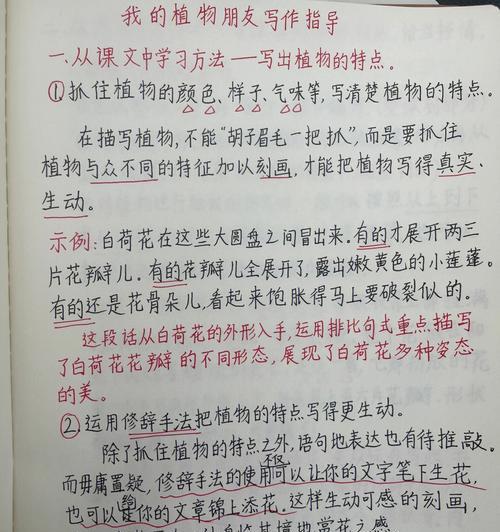 我的植物朋友写作指导
一.从课文中学习方法——写出植物的特点。
①抓住植物的颜色、样子、气味等,写清楚植物的特点。
在描写植物,不能“胡子眉毛一把抓”,而是要抓住
植物与众不同的特征加以刻画,才能把植物写得真实、
生动。
示例:白荷花在这些大圆盘之间冒出来.有的才展开两三
片花瓣儿.有的花瓣儿全展开了,露出嫩黄色的小莲蓬。
有的还是花骨朵儿,看起来饱胀得马上要破裂似的。
这段话从白荷花的外形入手,运用排比句式重点描写
了白荷花花瓣的不同形态,展现了白荷花多种姿态
的美。
②运用修辞手法把植物的特点写得更生动。
除了抓住植物的特点之外,语句地表达也有待推敲。
而毋庸置疑,修辞手法的使用不仅可以让你的文字笔下生花,
也可以给你的文章锦上添花.这样生动可感的刻画,